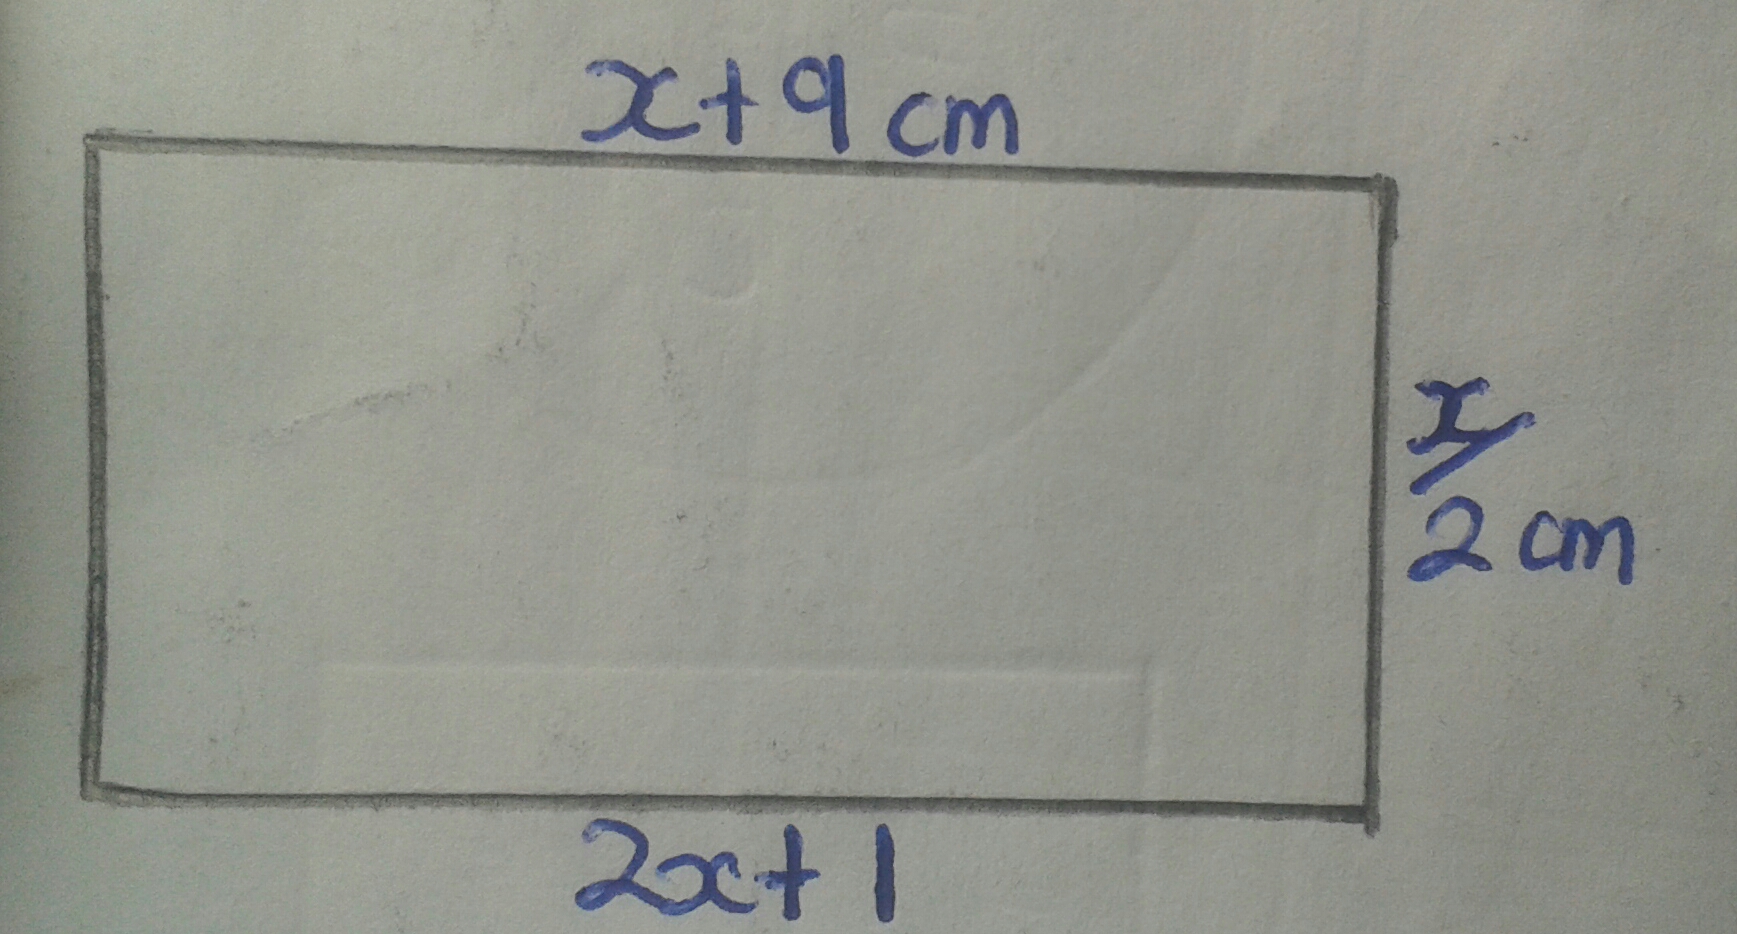 x+9 cm
x/
2 cm
2x+1